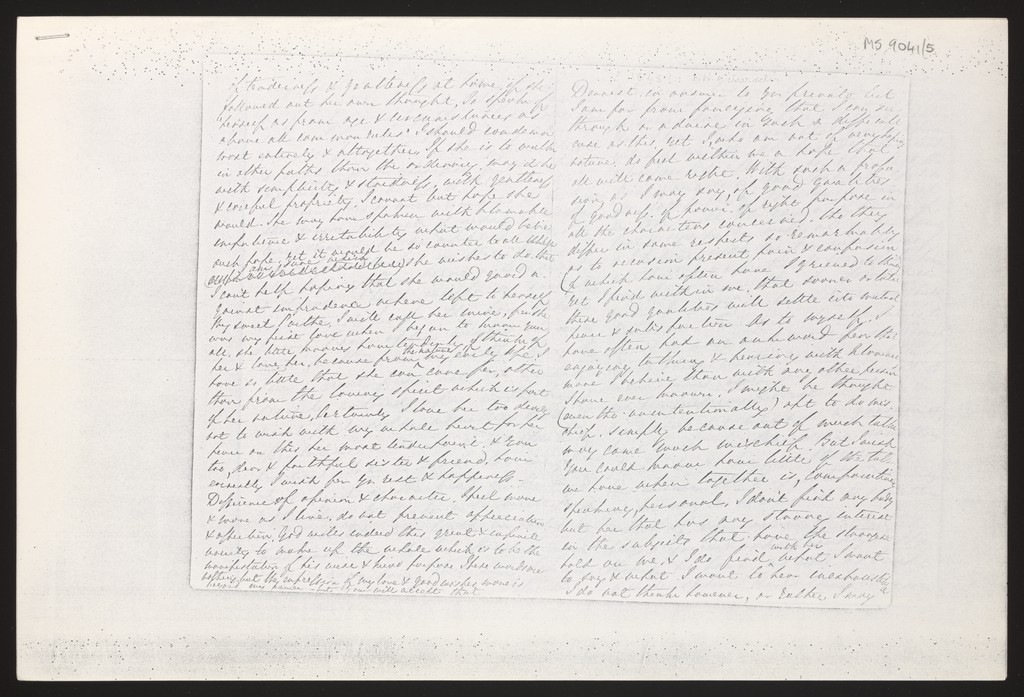 MS 9041/5
of tenderness & gentleness at home, if she
followed out her own thought, so speaking
herself as from age & circumstances as
above all common rules. I should condemn
most entirely & altogether. If she is to walk
in other paths than the ordinary may it be
with simplicity & steadiness, with gentleness
& careful propriety. I cannot but hope she
would. She may have spoken with blameable
impatience & irritability what would belie
such hope, yet it would be so counter to all
she wishes to do, that
I can't help hoping that she would guard a-
gainst imprudence where left to herself
My sweet Parthe, I will call her mine, for she
was my first love when I began to know you
all, she little knows how tenderly I think of
her & love her, because from my early life I
have so little that she can care for, other
than from the loving spirit which is part
of her nature. Certainly I love her too dearly
not to wish with my whole heart for her
peace on this her most tender point & you
too, dear & faithful sister & friend, how
earnestly I wish for yr rest & happiness.
Difference of opinion & character, I feel more
& more as I live, do not prevent appreciation
& affection. God wills indeed this great & infinite
variety to make up the whole which is to be the
manifestation of his wise & kind purpose. These words are
nothing but the expression of my love & good wishes more is
beyond my power but you will accept that
Dearest in answer to you privately, but
I am far from fancying that I can see
through or advise in such a difficult
case as this, yet I, who am not of very hoping
nature, do feel within me a hope that
all will come right. With such a profu-
sion as I may say, of good qualities
of goodness, of power, of right purpose in
all the characters concerned, tho' they
differ in some respects so remarkably
as to occasion present pain & confusion
(& which have often have I grieved to think)
yet I feel within me, that sooner or later
these good qualities will settle into mutual
peace & satisfaction. As to myself, I
have often had an awkward fear that
enjoying talking & hearing with Florence
more I believe than with any other person
I have ever known, I might be thought
(even tho' unintentionally) apt to do mis-
chief, simply because out of much talk
may come much mischief. But I wish
you could know how little of the talk
we have when together is, comparatively
speaking, personal, I don't find any body
but her that has any strong interest
in the subjects that have the strongest
hold on me, & I do find with her what I want
to say & what I want to hear inexhaustible
I do not think however, or rather I say